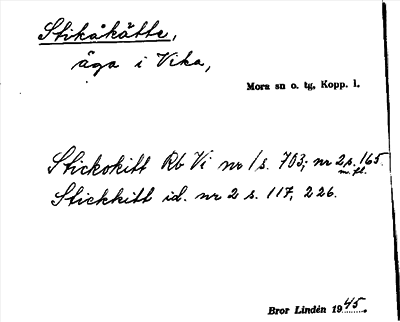 Stikåkätte,
äga i Vika,
Mora sn o. tg, Kopp. l.
Stickokitt Rb Vi nr 1 s. 703; nr 2 s. 165.
m. fl.
Stickkitt id. nr 2 s. 117, 226.
Bror Lindén 1945.